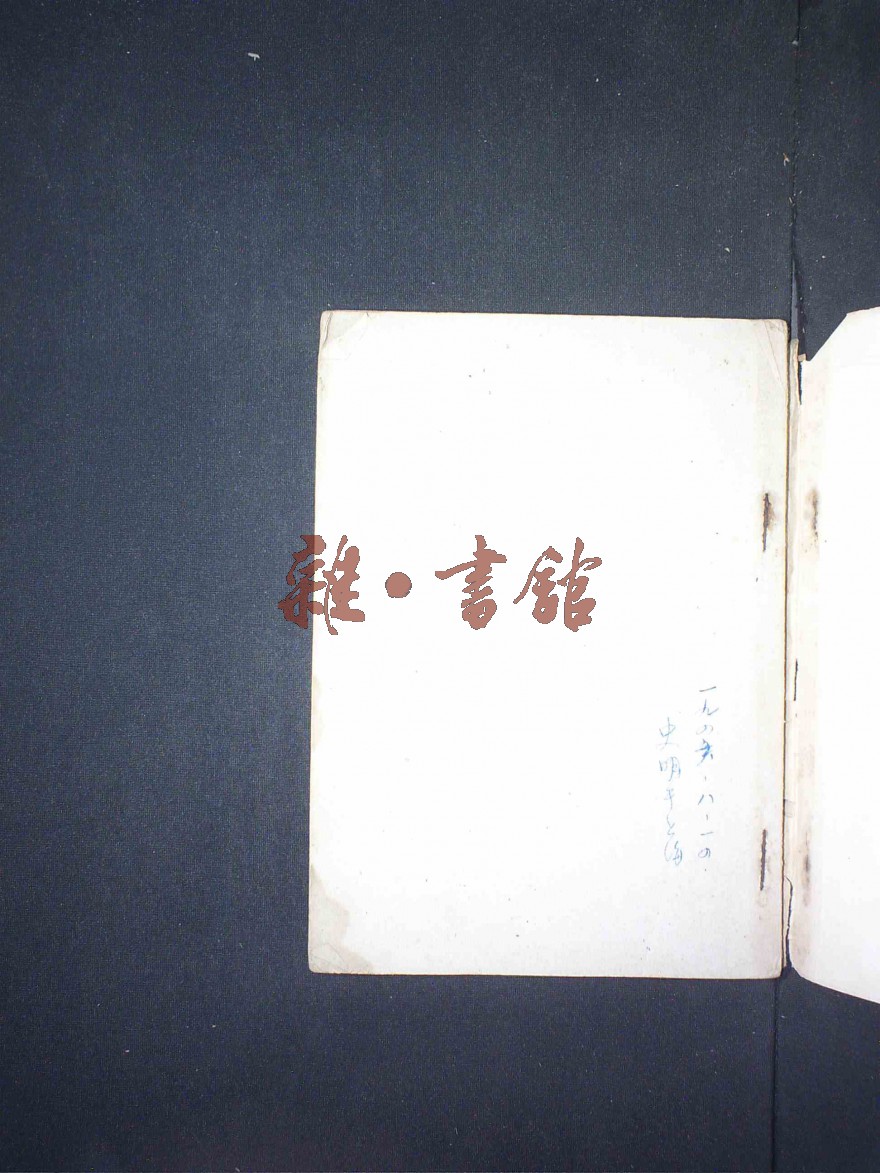 雜·書館
一九六六·八·一四.
史明于上海